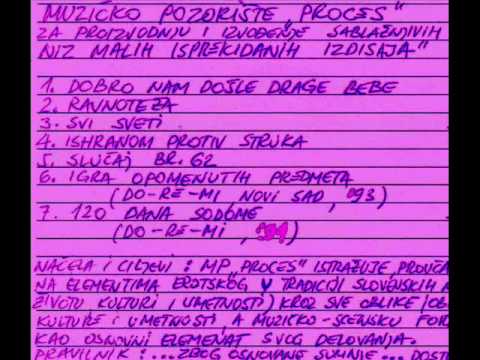 MUZIČKO POZORIŠTE "PROCES"
ZA PROIZVODNJU I IZVOĐENJE SABLAŽNJIVIH
NIZ MALIH ISPREKIDANIH IZDISAJA"
1. DOBRO NAM DOŠLE DRAGE BEBE
2. RAVNOTEŽA
3. SVI SVETI
4. ISHRANOM PROTIV STRUKA
5. SLUČAJ BR. 62
6. IGRA OPOMENUTIH PREDMETA
(DO-RE-MI, NOVI SAD, '93)
7. 120 DANA SODOME
(DO-RE-MI,
NAČELA I CILJEVI: MP "PROCES" ISTRAŽUJE, PROUČA
NA ELEMENTIMA EROTSKOG U TRADICIJI SLOVENSKIH
ŽIVOTU KULTURI I UMETNOSTI) KROZ SVE OBLIKE
KULTURE I UMETNOSTI, A MUZIČKO-SCENSKU
KAO OSNOVNI ELEMENAT SVOG DELOVANJA.
PRAVILNIK: ...ZBOG OSNOVANE SUMNJE...